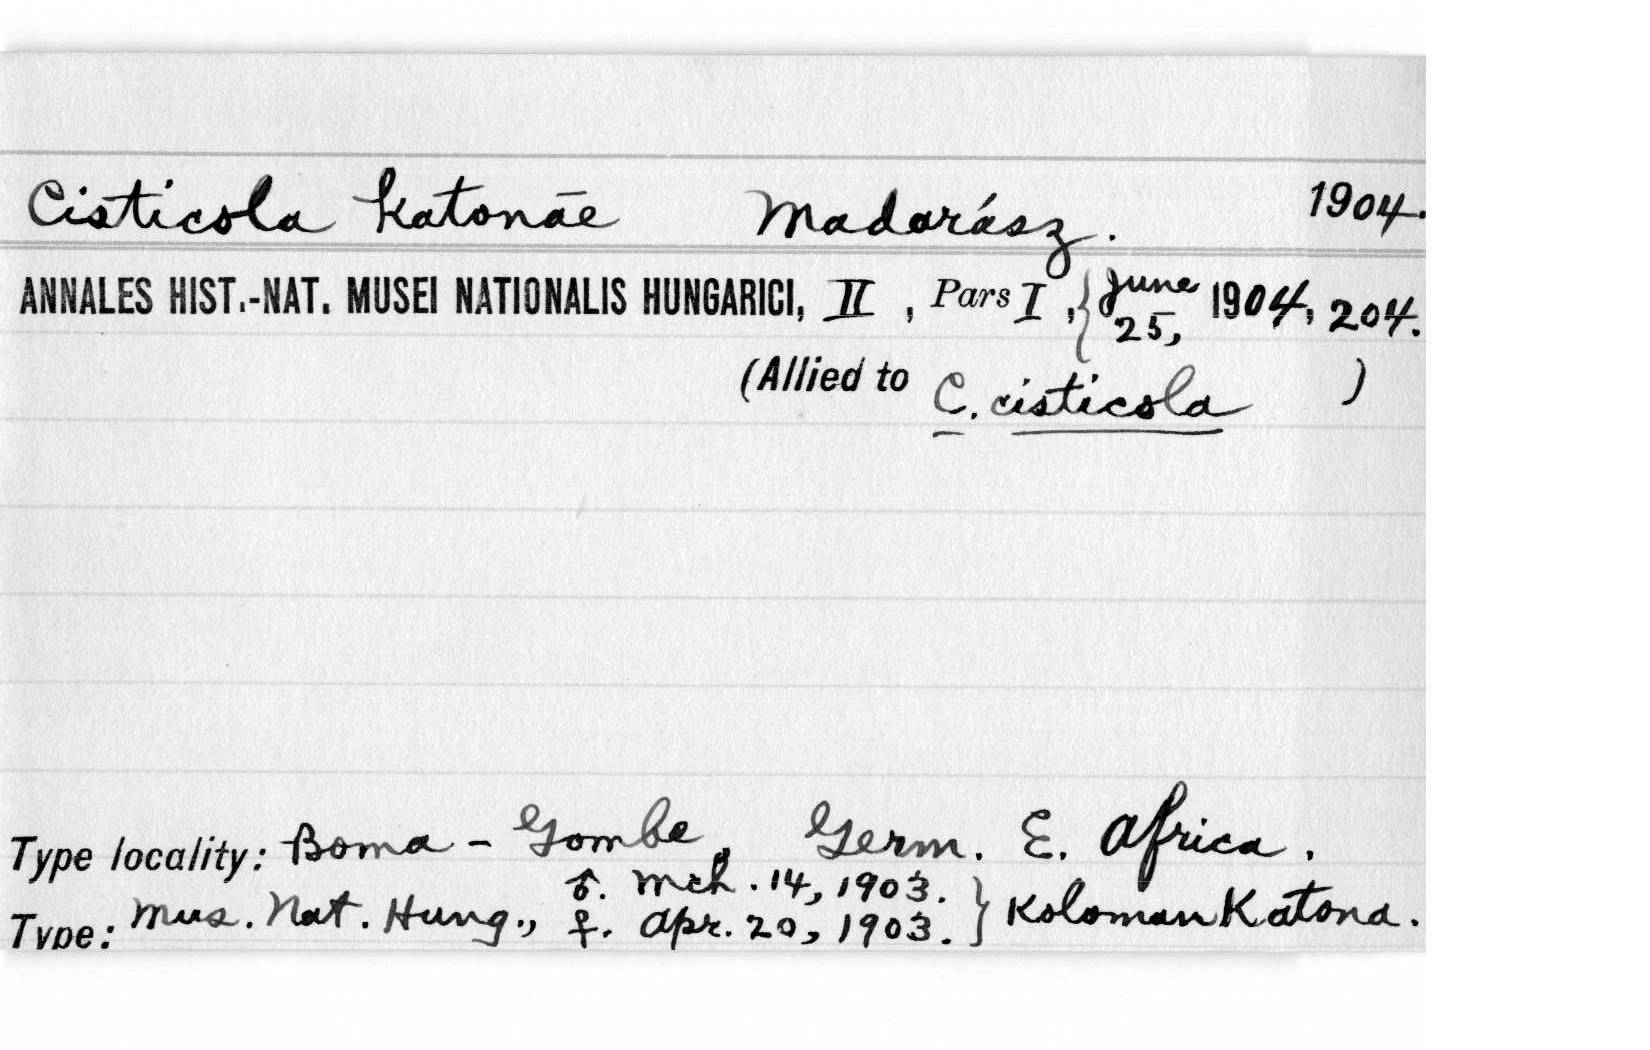 Cisticola katonae Madarász. 1904.
ANNALES HIST.-NAT. MUSEI NATIONALIS HUNGARICI, II, Pars I, { June 25, 1904, 204.
(Allied to C. cisticola )
Type locality: Boma - Gombe, Germ. E. Africa.
Type: Mus. Nat. Hung., ♂. Mch. 14, 1903. ♀. Apr. 20, 1903. } Koloman Katona.